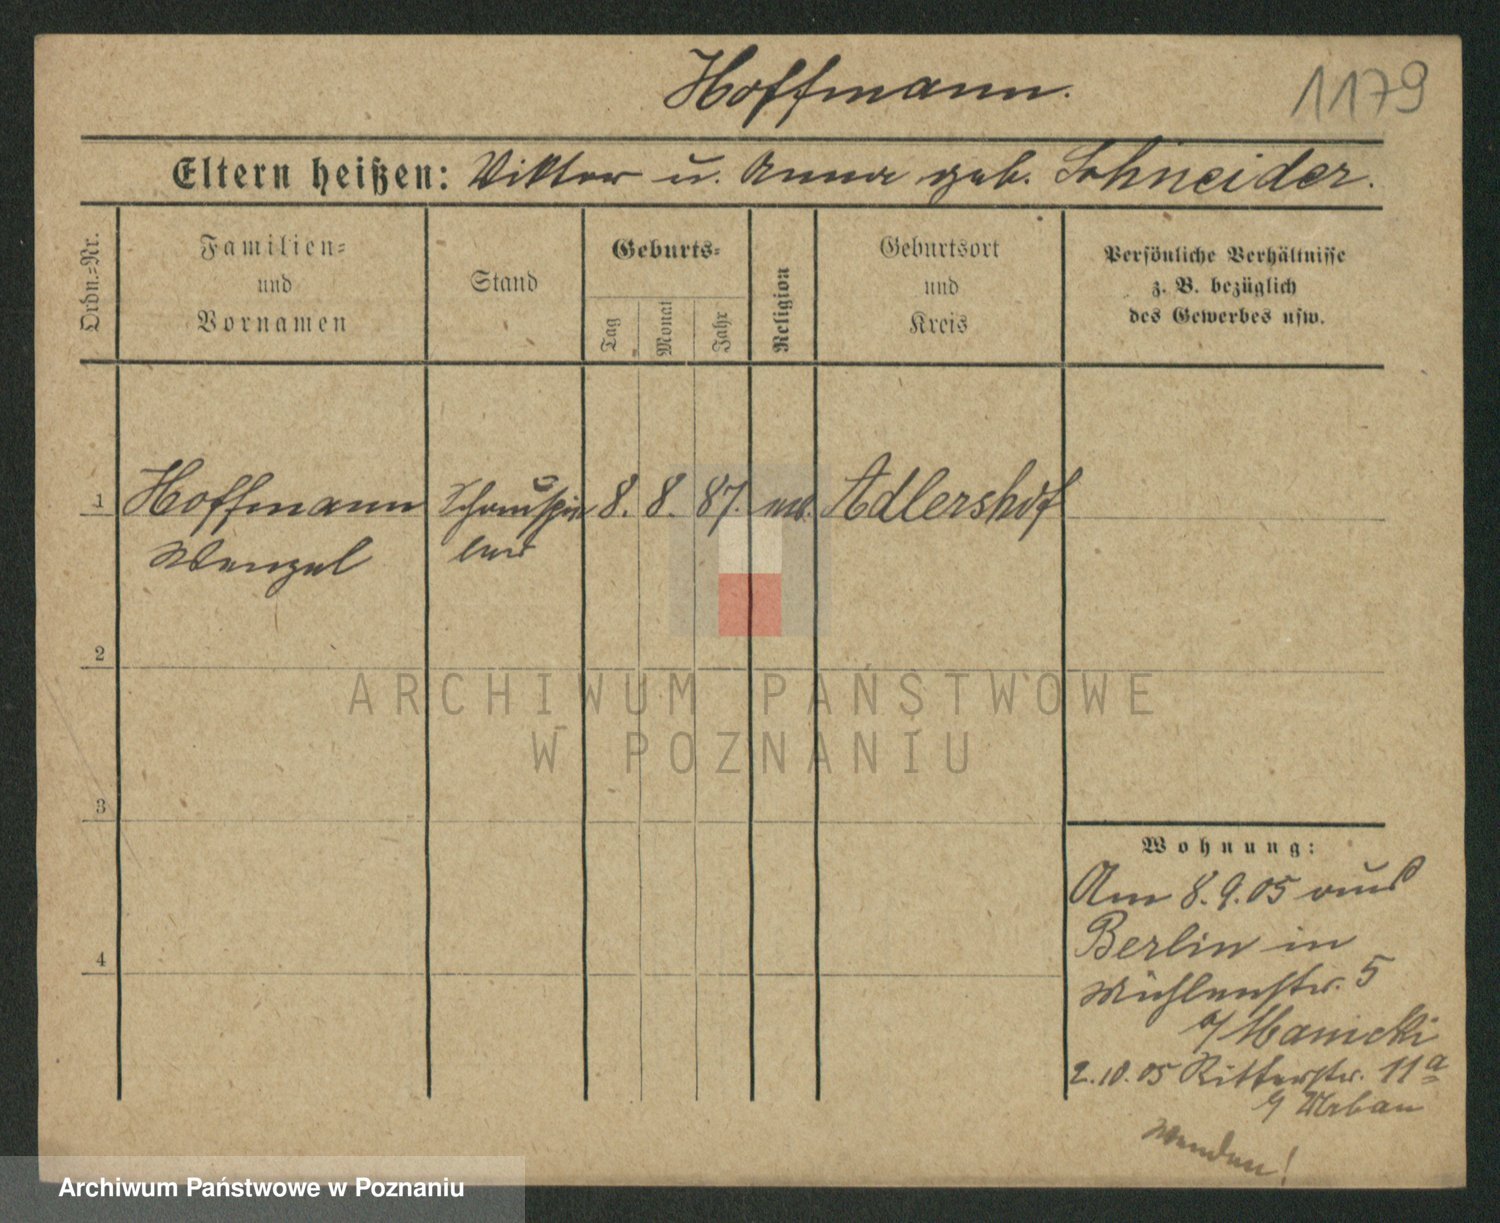 Hoffmann.
1179
Eltern heißen: Viktor u. Anna geb. Schneider.
Ordn.=Nr.
Familien=
und
Vornamen
Stand
Geburts=
Tag
Monat
Jahr
Religion
Geburtsort
und
Kreis
Persönliche Verhältnisse
z. B. bezüglich
des Gewerbes usw.
1 Hoffmann Schauspie 8. 8. 87. Adlershof
Wenzel ler
2
ARCHIWUM PAŃSTWOWE
W POZNANIU
3
Wohnung:
Am 8.9.05 aus
Berlin in
4
Mühlenstr. 5
b/ Manicki
2.10.05 Ritterstr. 11a
b/ Urban
Wenden!
Archiwum Państwowe w Poznaniu